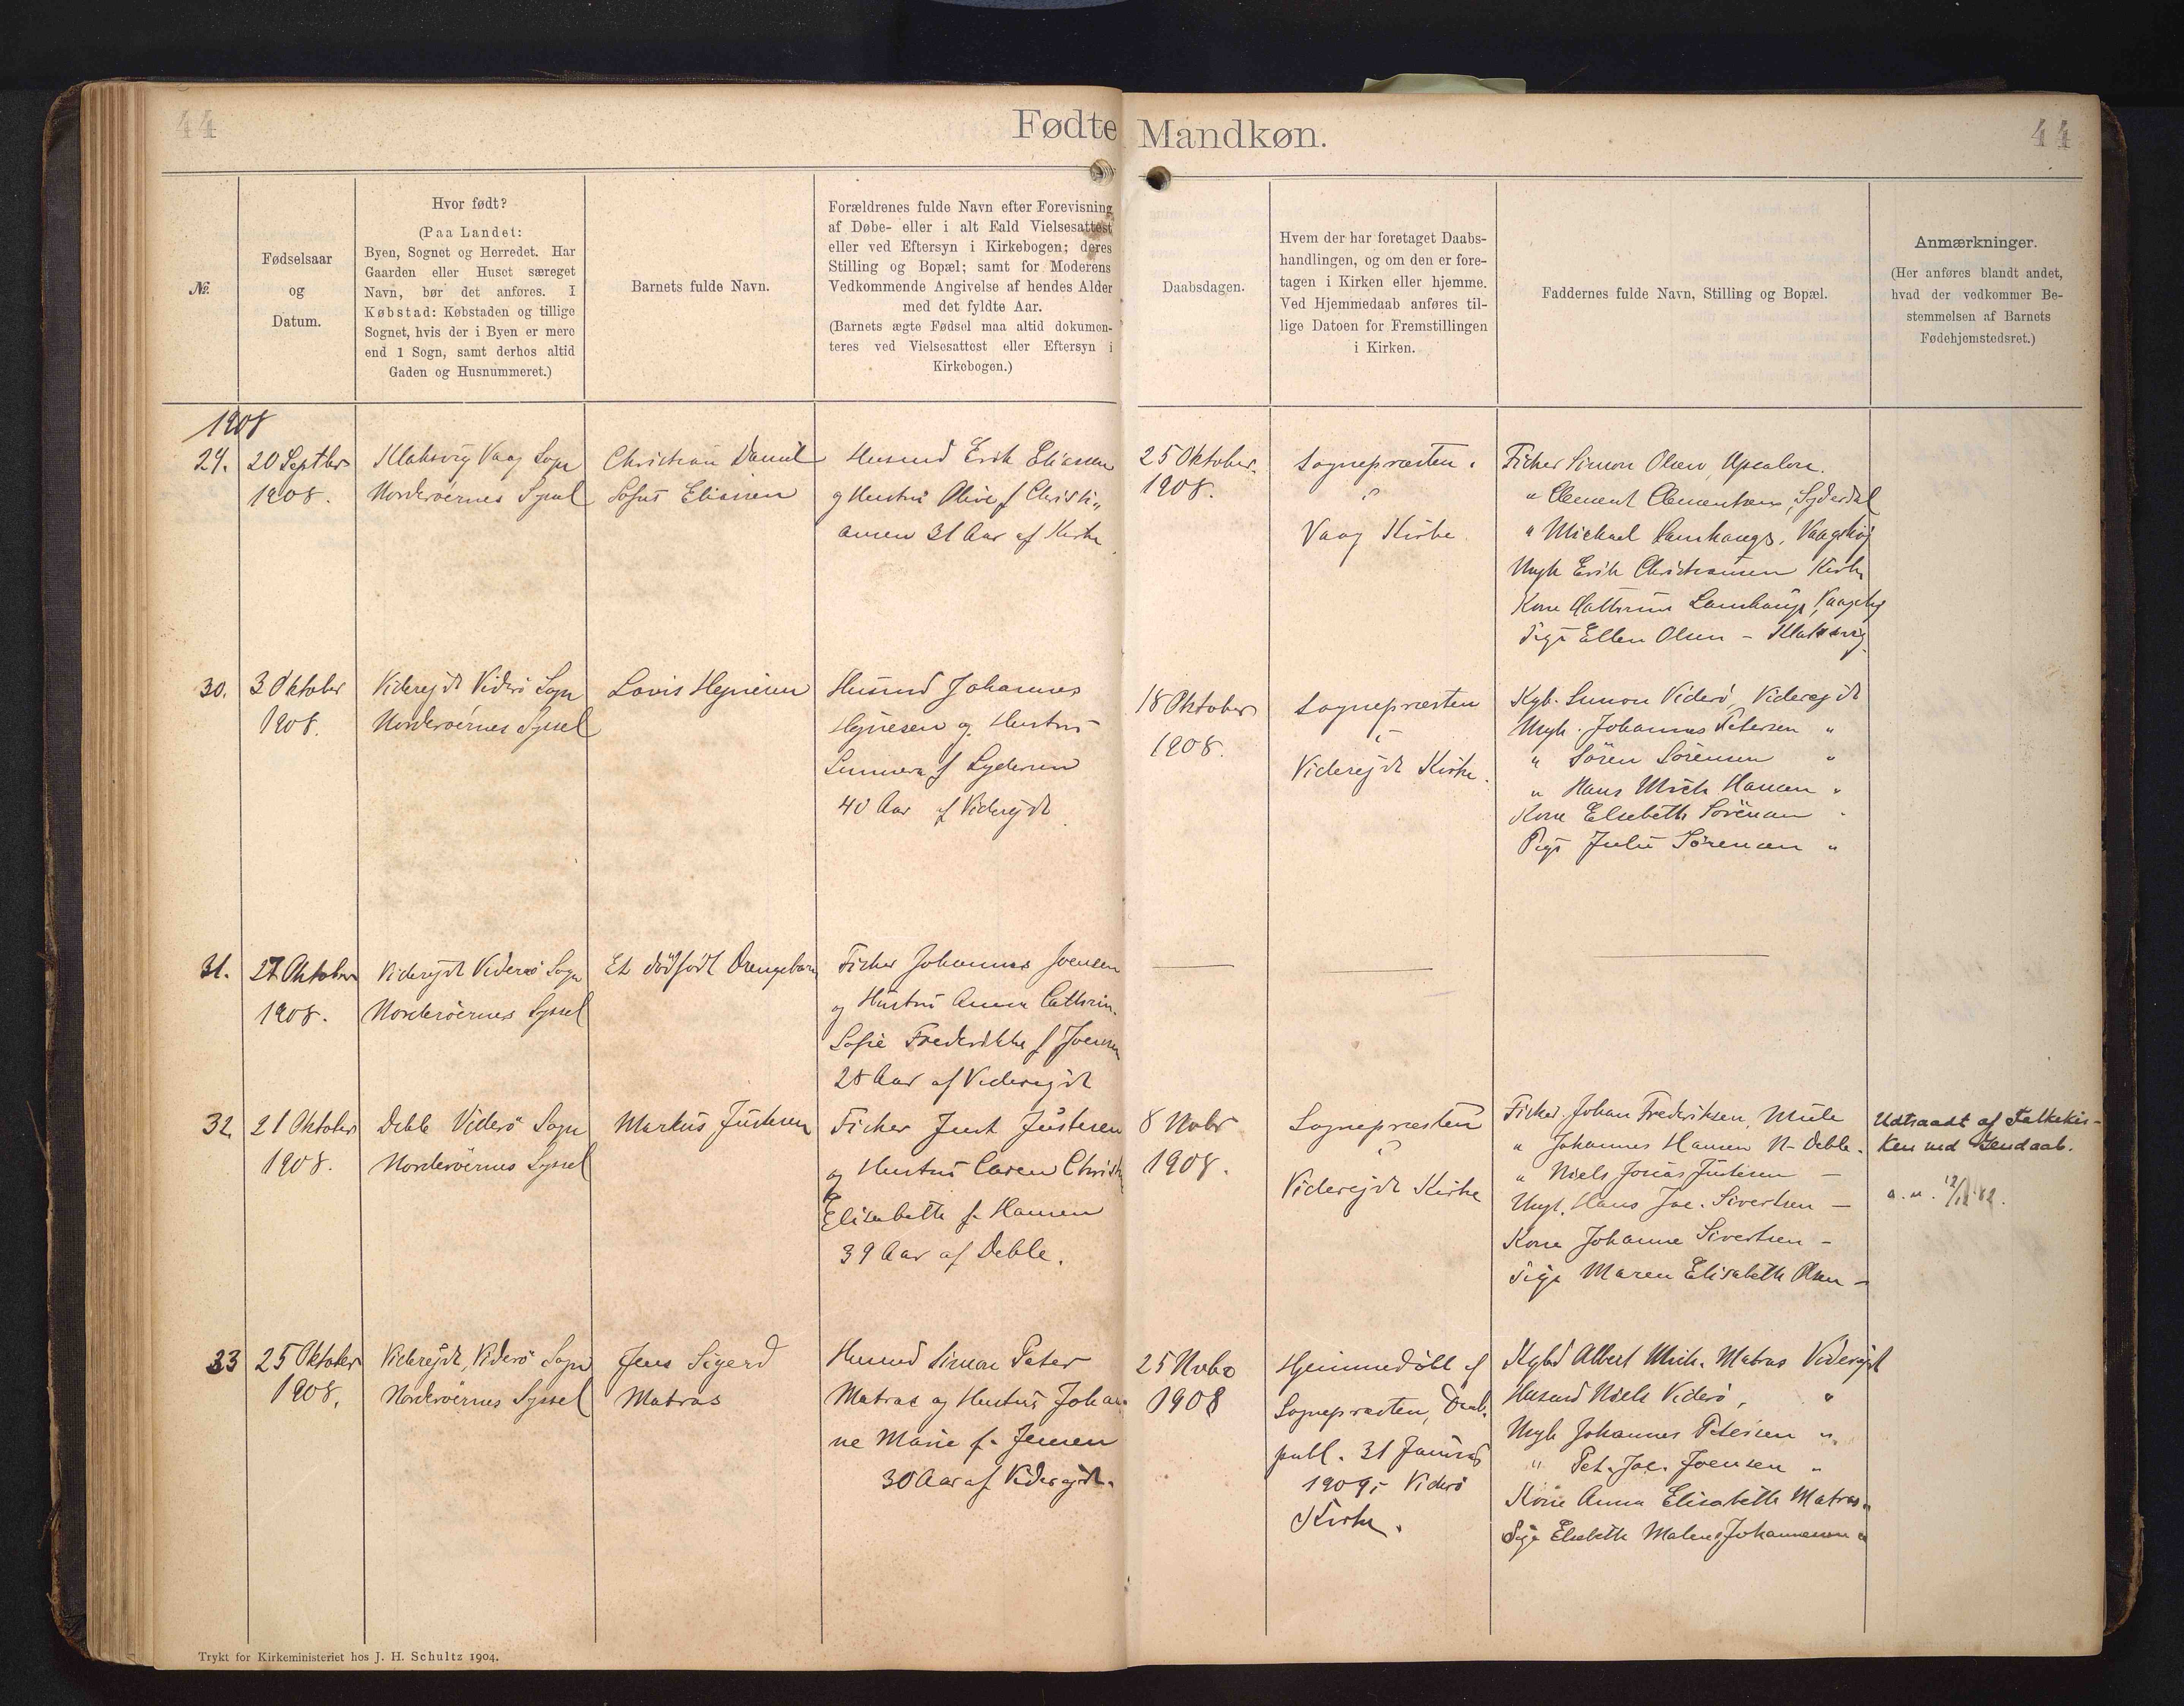 44
Fødte Mandkøn.
44
№.
Fødselsaar
og
Datum.
Hvor født?
(Paa Landet:
Byen, Sognet og Herredet. Har
Gaarden eller Huset særeget
Navn, bør det anføres. I
Købstad: Købstaden og tillige
Sognet, hvis der i Byen er mere
end 1 Sogn, samt derhos altid
Gaden og Husnummeret.)
Barnets fulde Navn.
Forældrenes fulde Navn efter Forevisning
af Døbe- eller i alt Fald Vielsesattest
eller ved Eftersyn i Kirkebogen; deres
Stilling og Bopæl; samt for Moderens
Vedkommende Angivelse af hendes Alder
med det fyldte Aar.
(Barnets ægte Fødsel maa altid dokumen-
teres ved Vielsesattest eller Eftersyn i
Kirkebogen.)
Daabsdagen.
Hvem der har foretaget Daabs-
handlingen, og om den er fore-
tagen i Kirken eller hjemme.
Ved Hjemmedaab anføres til-
lige Datoen for Fremstillingen
i Kirken.
Faddernes fulde Navn, Stilling og Bopæl.
Anmærkninger.
(Her anføres blandt andet,
hvad der vedkommer Be-
stemmelsen af Barnets
Fødehjemstedsret.)
1908
29.
20 Septbr
1908.
Klaksvig Vaag Sogn
Norderøernes Syssel
Christian Daniel
Sofus Eliassen
Husmd Erik Eliassen
og Hustru Olive f. Christi„
ansen 31 Aar af Kirke
25 Oktober
1908.
Sognepræsten
i
Vaag Kirke.
Fisker Simon Olsen, Upsalon.
" Clement Clementsen, Syderdal
" Michael Lamhauge, Vaagshøj
Ungk Erik Christiansen Kirke
Kone Cathrine Lamhauge, Vaagshøj
Pige Ellen Olsen - Klaksvig
30.
3 Oktober
1908.
Viderejdt Viderø Sogn
Norderøernes Syssel
Lovis Hejnesen
Husmd Johannes
Hejnesen og Hustru
Sunneva f Lydersen
40 Aar af Viderejdt
18 Oktober
1908.
Sognepræsten
i
Viderejdt Kirke.
Kgb. Simon Viderø, Viderejdt
Ungk. Johannes Petersen "
" Sören Sörensen "
" Hans Mich Hansen "
Kone Elsebeth Sörensen "
Pige Julie Sörensen "
31.
27 Oktober
1908.
Viderejdt Viderø Sogn
Norderøernes Syssel
Et dödfødt Drengebarn
Fisker Johannes Joensen
og Hustru Anna Cathrin.
Sofie Frederikke f Joensen
28 Aar af Viderejdt
32.
21 Oktober
1908.
Deble Viderø Sogn
Norderøernes Syssel
Markus Justesen
Fisker Just Justesen
og Hustru Caren Christ
Elisabeth f. Hansen
39 Aar af Deble.
8 Novbr
1908.
Sognepræsten
i
Viderejdt Kirke
Fisker. Johan Frederiksen, Mule
" Johannes Hansen N- Deble.
" Niels Jonas Justesen -
Ungk. Hans Jac. Sivertsen -
Kone Johanne Sivertsen -
Pige Maren Elisabeth Olsen -
Udtraadt af Folkekir-
ken ved Gendaab.
33
25 Oktober
1908.
Viderejdt, Viderø Sogn
Norderøernes Syssel
Jens Sigerd
Matras
Husmd Simon Peter
Matras og Hustru Johan-
ne Marie f. Jensen
30 Aar af Viderejdt.
25 Novbr
1908
Hjemmedöbt af
Sognepræsten, Daab.
publ. 31 Januar
1909 i Viderø
Kirke.
Kgbd Albert Mich. Matras Viderejdt
Husmd Niels Viderø, "
Ungk Johannes Petersen "
" Pet. Jac. Joensen "
Kone Anna Elisabeth Matras "
Pige Elsebeth Malene Johannesen "
Trykt for Kirkeministeriet hos J. H. Schultz 1904.